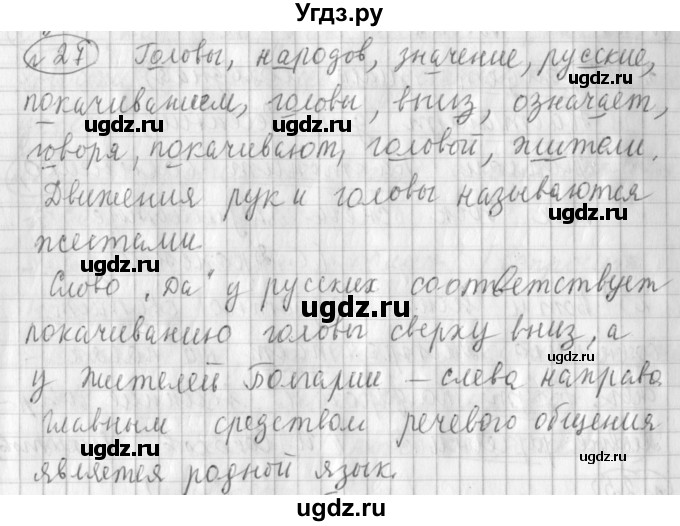 Угдз.ру
№27 Головы, народов, значение, русские,
покачиванием, головы, вниз, означает,
ugdz.ru ugdz.ru ugdz.ru
говоря, покачивают, головой, жители.
Движения рук и головы называются
ugdz.ru
жестами
ugdz.ru
Слово „Да" у русских соответствует
ugdz.ru
покачиванию головы сверху вниз, а
ugdz.ru
у жителей Болгарии – слева направо.
Главным средством речевого общения
ugdz.ru ugdz.ru
является родной язык.
ugdz.ru